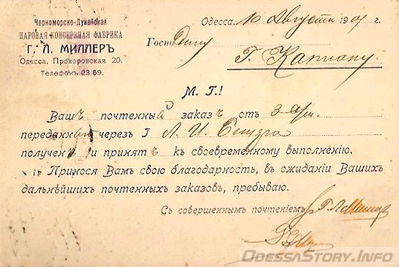 Черноморско-Дунайская
ПАРОВАЯ КОНСЕРВНАЯ ФАБРИКА
Г. Л. МИЛЛЕРЪ
Одесса, Прохоровская 20.
Телефонъ 23 69.
Одесса, 10 Августа 190
Господину
Г. Каплану
М. Г.!
Вашъ почтенный заказъ отъ
переданный черезъ Г Л. И.
полученъ и принятъ къ своевременному выполненію.
Принося Вамъ свою благодарность, въ ожиданіи Вашихъ
дальнѣйшихъ почтенныхъ заказовъ, пребываю.
Съ совершеннымъ почтеніемъ
OdessaStory.Info